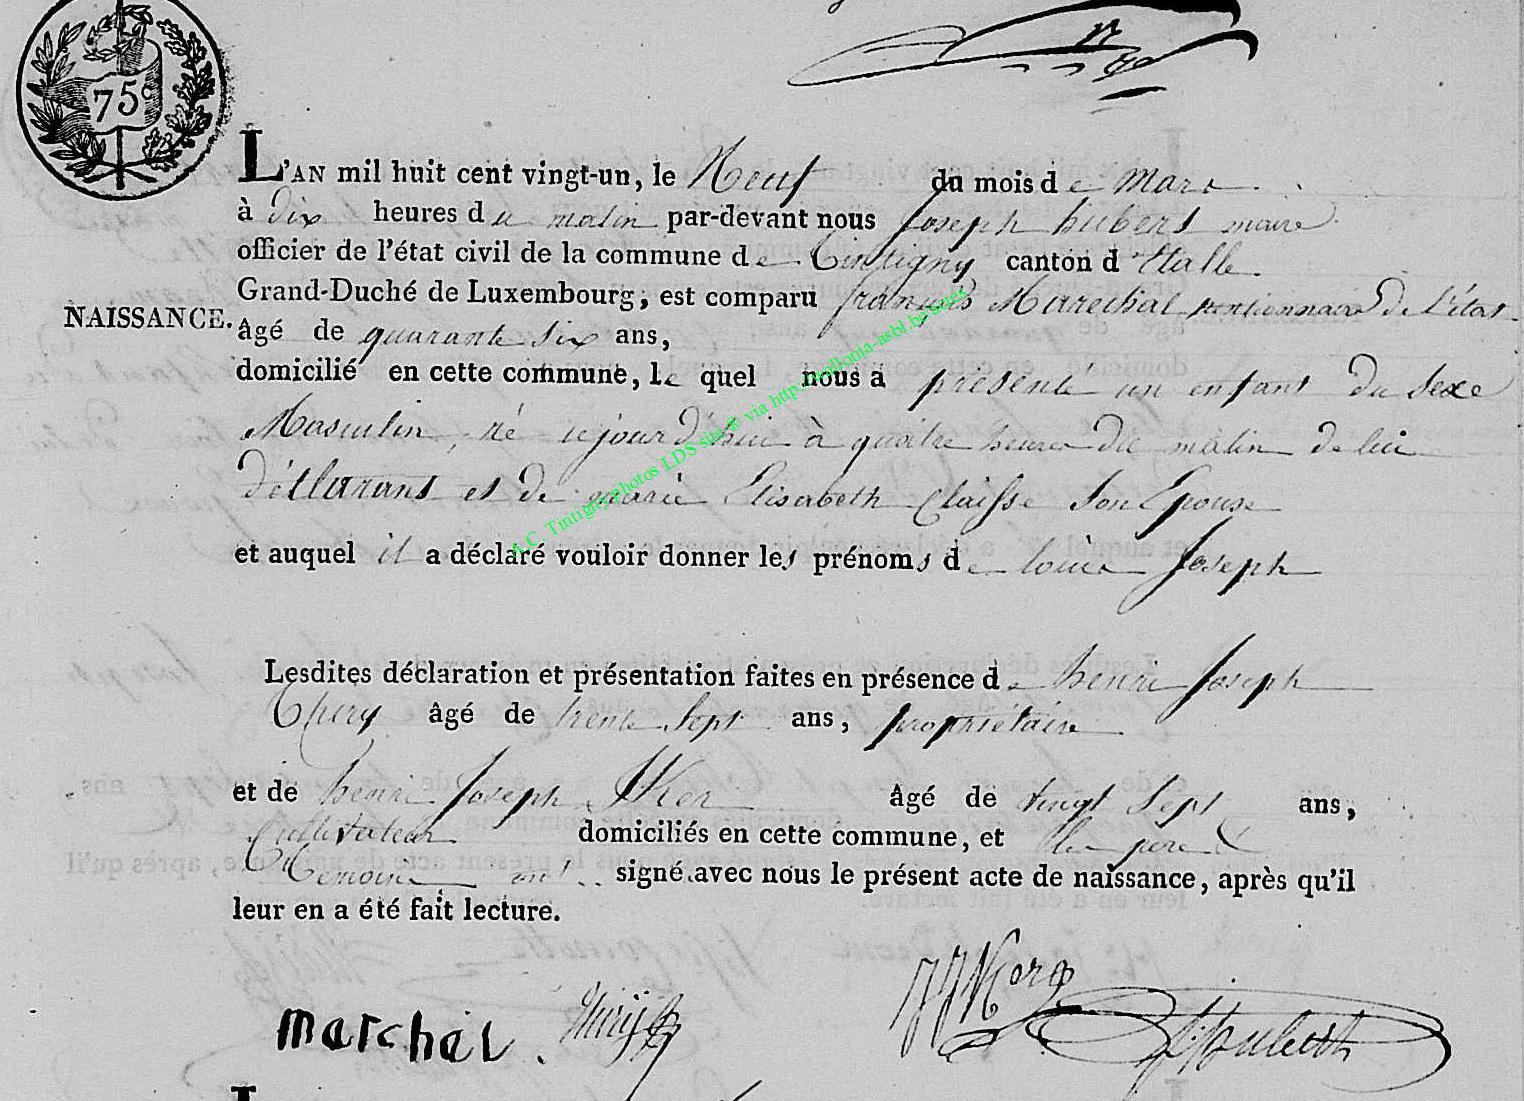 75c
L'AN mil huit cent vingt-un, le Neuf du mois de mars
à dix heures du matin par-devant nous Joseph hubert maire
officier de l'état civil de la commune de Tintigny canton d'Etalle
Grand-Duché de Luxembourg, est comparu françois Marechal pentionnaire de l'état
NAISSANCE. âgé de quarante six ans,
domicilié en cette commune, le quel nous a présenté un enfant du sexe
Masculin, né cejourd'hui à quatre heures du matin de lui
déclarant et de marie Elisabeth Claisse son Epouse
et auquel il a déclaré vouloir donner les prénoms de louis Joseph
Lesdites déclaration et présentation faites en présence de henri Joseph
Thiry âgé de trente sept ans, propriétaire
et de henri Joseph âgé de vingt sept ans,
Cultivateur domiciliés en cette commune, et les pere et
temoins ont signé avec nous le présent acte de naissance, après qu'il
leur en a été fait lecture.
marchal Thiry hubert
A.C. Tintigny photos LDS site @ via http://wallonia-asbl.be/actes